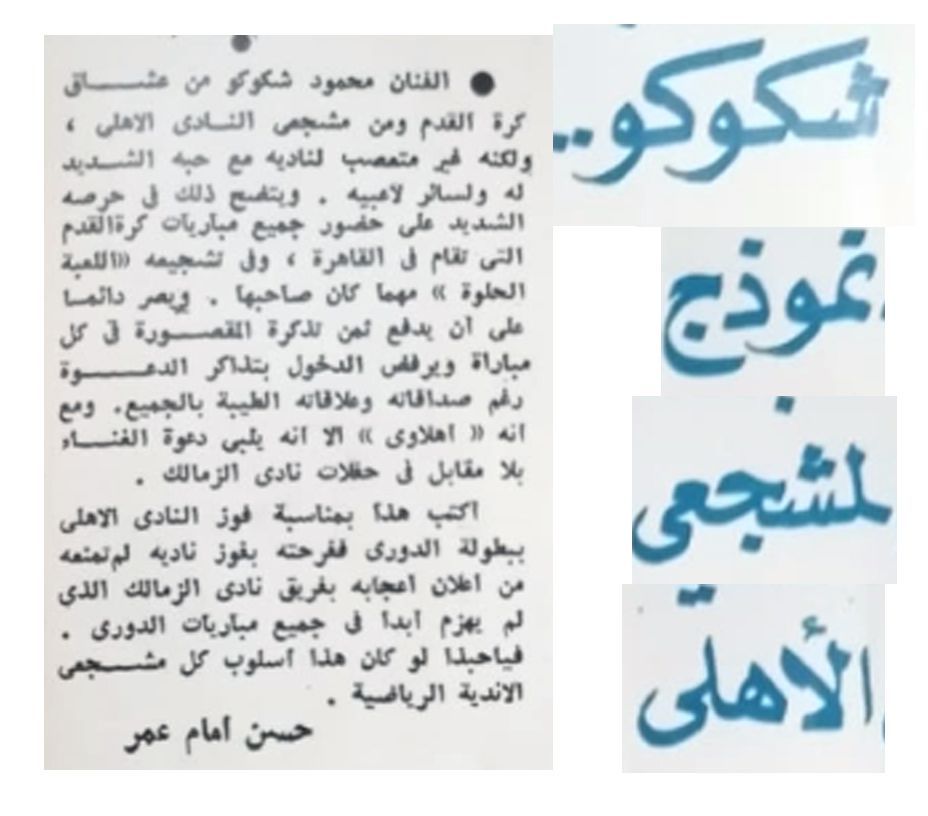 شكوكو..
نموذج
لمشجعى
الأهلى
● الفنان محمود شكوكو من عشـــاق
كرة القدم ومن مشجعى النــادى الاهلى ،
ولكنه غير متعصب لناديه مع حبه الشــديد
له ولسائر لاعبيه . ويتضح ذلك فى حرصه
الشديد على حضور جميع مباريات كرةالقدم
التى تقام فى القاهرة ، وفى تشجيعه «اللعبة
الحلوة » مهما كان صاحبها . ويصر دائمــا
على أن يدفع ثمن تذكرة المقصــورة فى كل
مباراة ويرفض الدخول بتذاكر الدعـــــوة
رغم صداقاته وعلاقاته الطيبة بالجميع. ومع
انه « أهلاوى » الا انه يلبى دعوة الغنــاء
بلا مقابل فى حفلات نادى الزمالك .
أكتب هذا بمناسبة فوز النادى الاهلى
ببطولة الدورى ففرحته بفوز ناديه لم‌تمنعه
من اعلان اعجابه بفريق نادى الزمالك الذى
لم يهزم أبدا فى جميع مباريات الدورى .
فياحبذا لو كان هذا أسلوب كل مشـــجعى
الاندية الرياضية .
حسن امام عمر